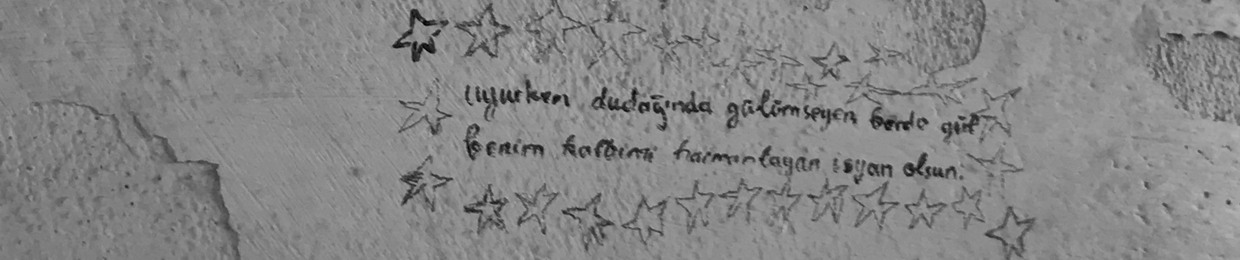 uyurken dudağında gülümseyen bordo gül
benim kalbimi harmanlayan isyan olsun.